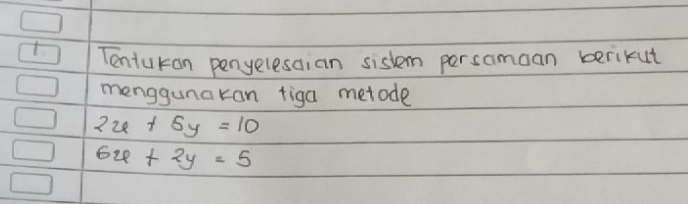 1. Tentukan penyelesaian sistem persamaan berikut
menggunakan tiga metode
2x + 5y = 10
6x + 2y = 5